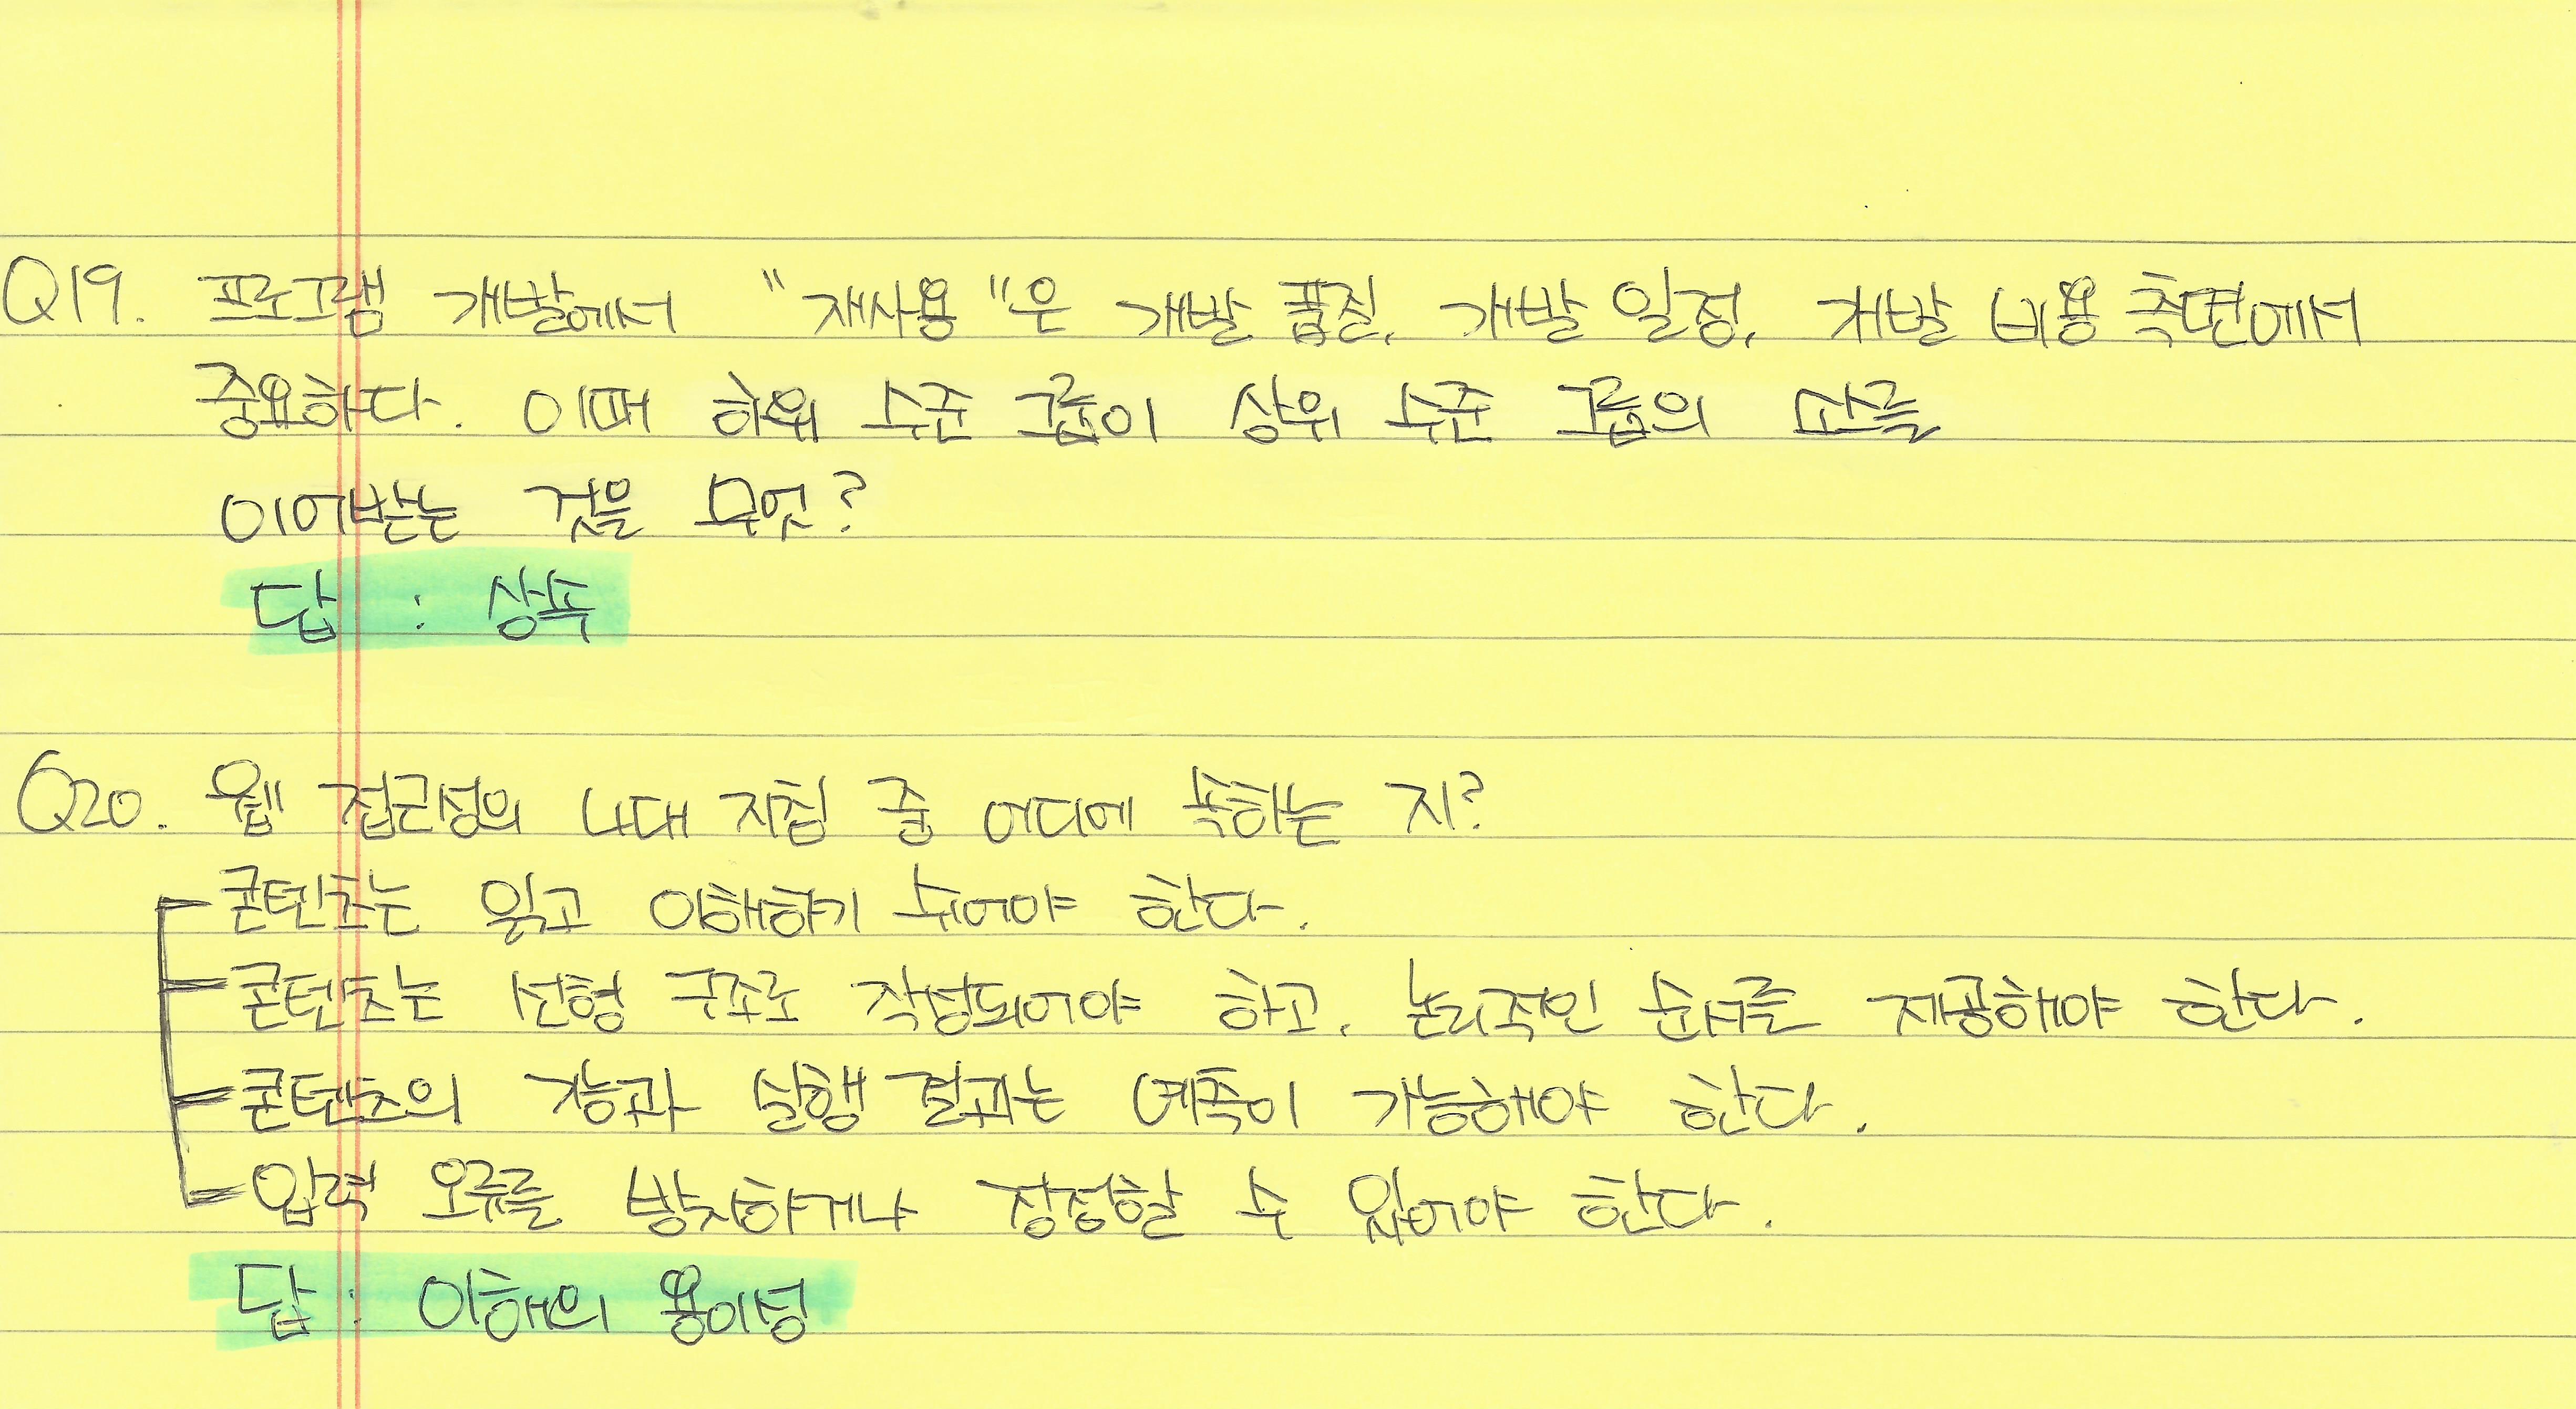 Q19. 프로그램 개발에서 "재사용"은 개발 품질, 개발 일정, 개발 비용 측면에서
중요하다. 이때 하위 수준 그룹이 상위 수준 그룹의 요소를
이어받는 것을 무엇?
답 : 상속
Q20. 웹 접근성의 4대 지침 중 어디에 속하는 지?
콘텐츠는 읽고 이해하기 쉬어야 한다.
콘텐츠는 선형 구조로 작성되어야 하고, 논리적인 순서를 제공해야 한다.
콘텐츠의 기능과 실행 결과는 예측이 가능해야 한다.
입력 오류를 방지하거나 정정할 수 있어야 한다.
답 : 이해의 용이성